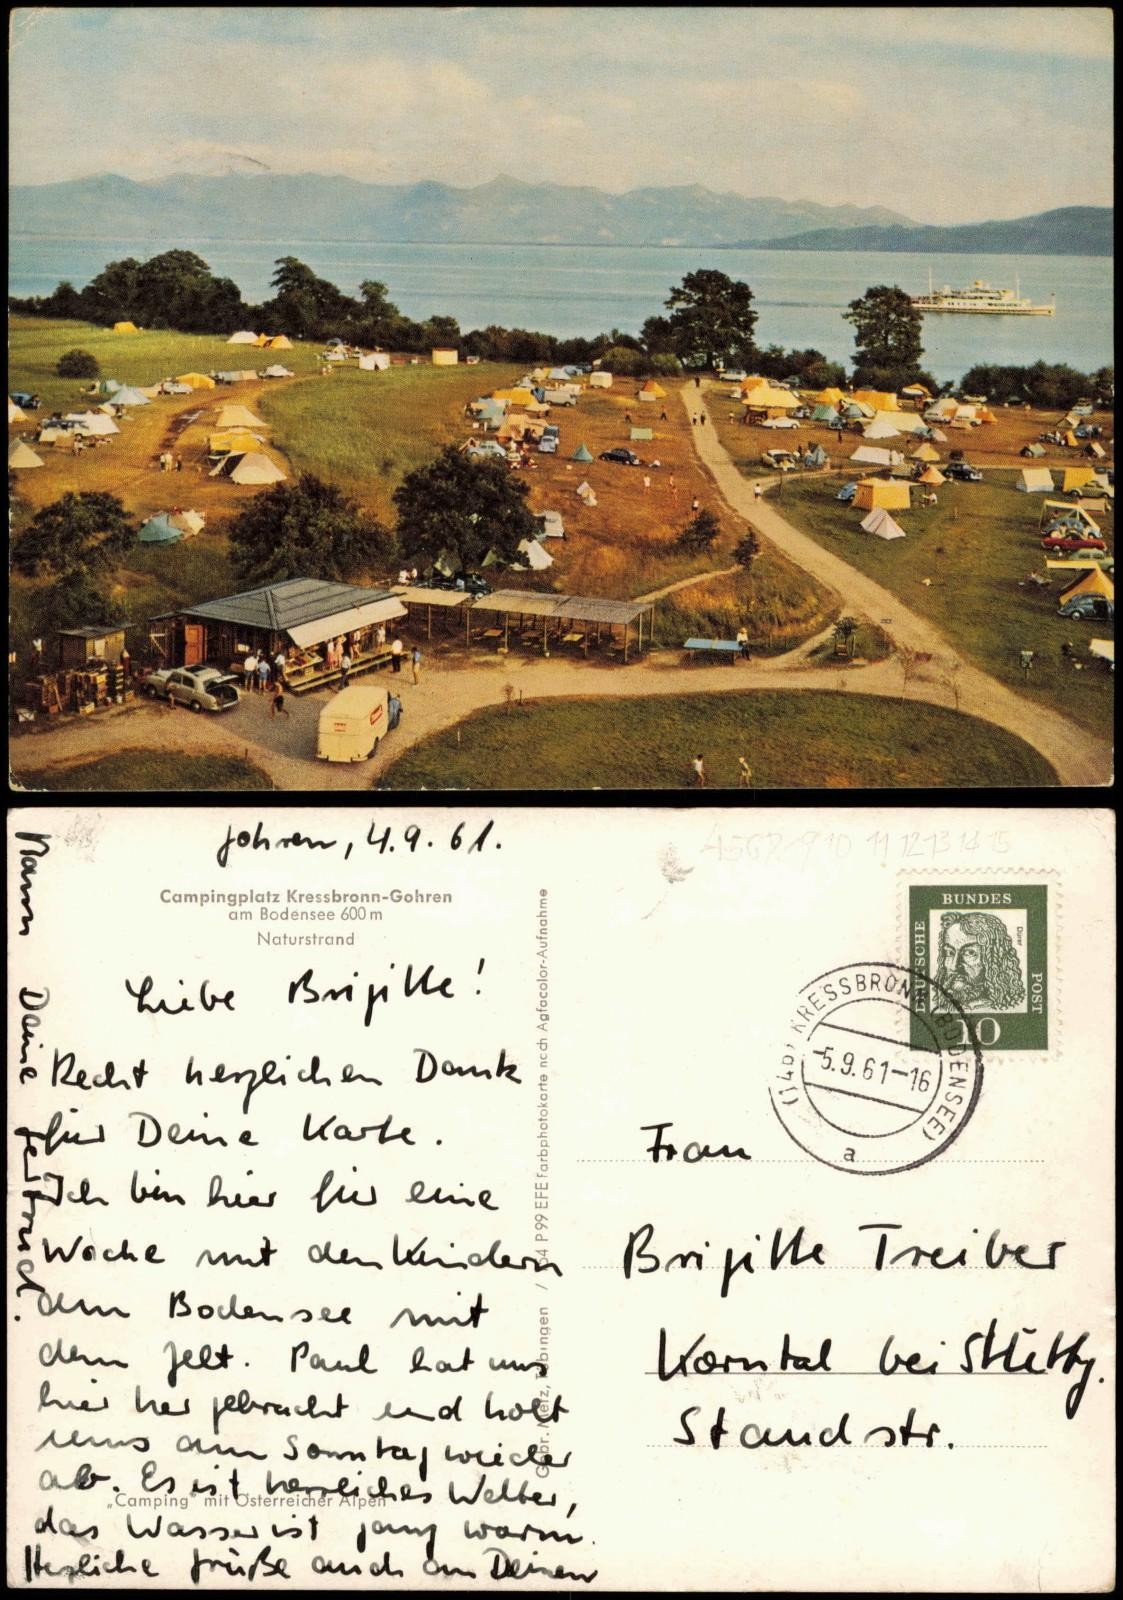 Gohren, 4.9.61.
Campingplatz Kressbronn-Gohren
am Bodensee 600 m
Naturstrand
Liebe Brigitte!
Recht herzlichen Dank
für Deine Karte.
Ich bin hier für eine
Woche mit den Kindern
am Bodensee mit
dem Zelt. Paul hat uns
hier her gebracht und holt
uns am Sonntag wieder
ab. Es ist herrliches Wetter,
„Camping" mit Österreicher Alpen
das Wasser ist ganz warm.
Herzliche Grüße auch an Deinen
Mann Deine Gertrud.
Gebr. Metz, Tübingen / 64 P 99 EFE Farbphotokarte nach Agfacolor-Aufnahme
4 5 6 7 8 9 10 11 12 13 14 15
DEUTSCHE
BUNDES
POST
Dürer
10
(14b) KRESSBRONN (BODENSEE)
-5.9.61-16
a
Frau
Brigitte Treiber
Korntal bei Stuttg.
Standstr.